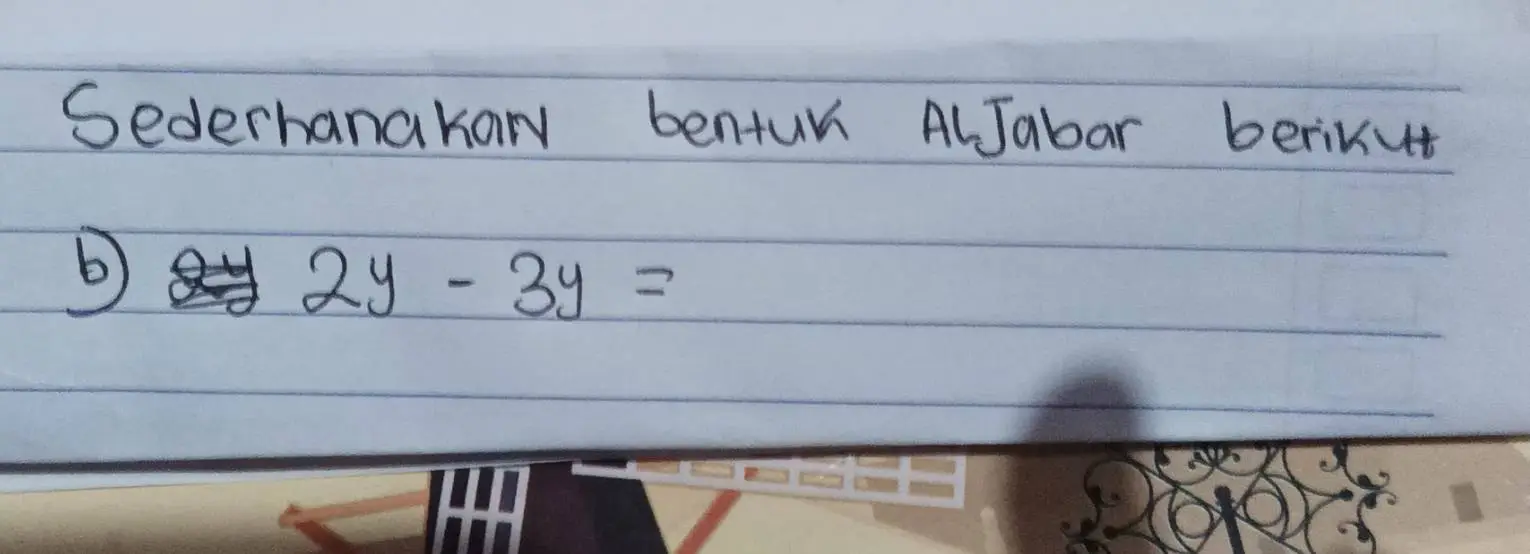 Sederhanakan bentuk Aljabar berikut
b) 2y - 3y =